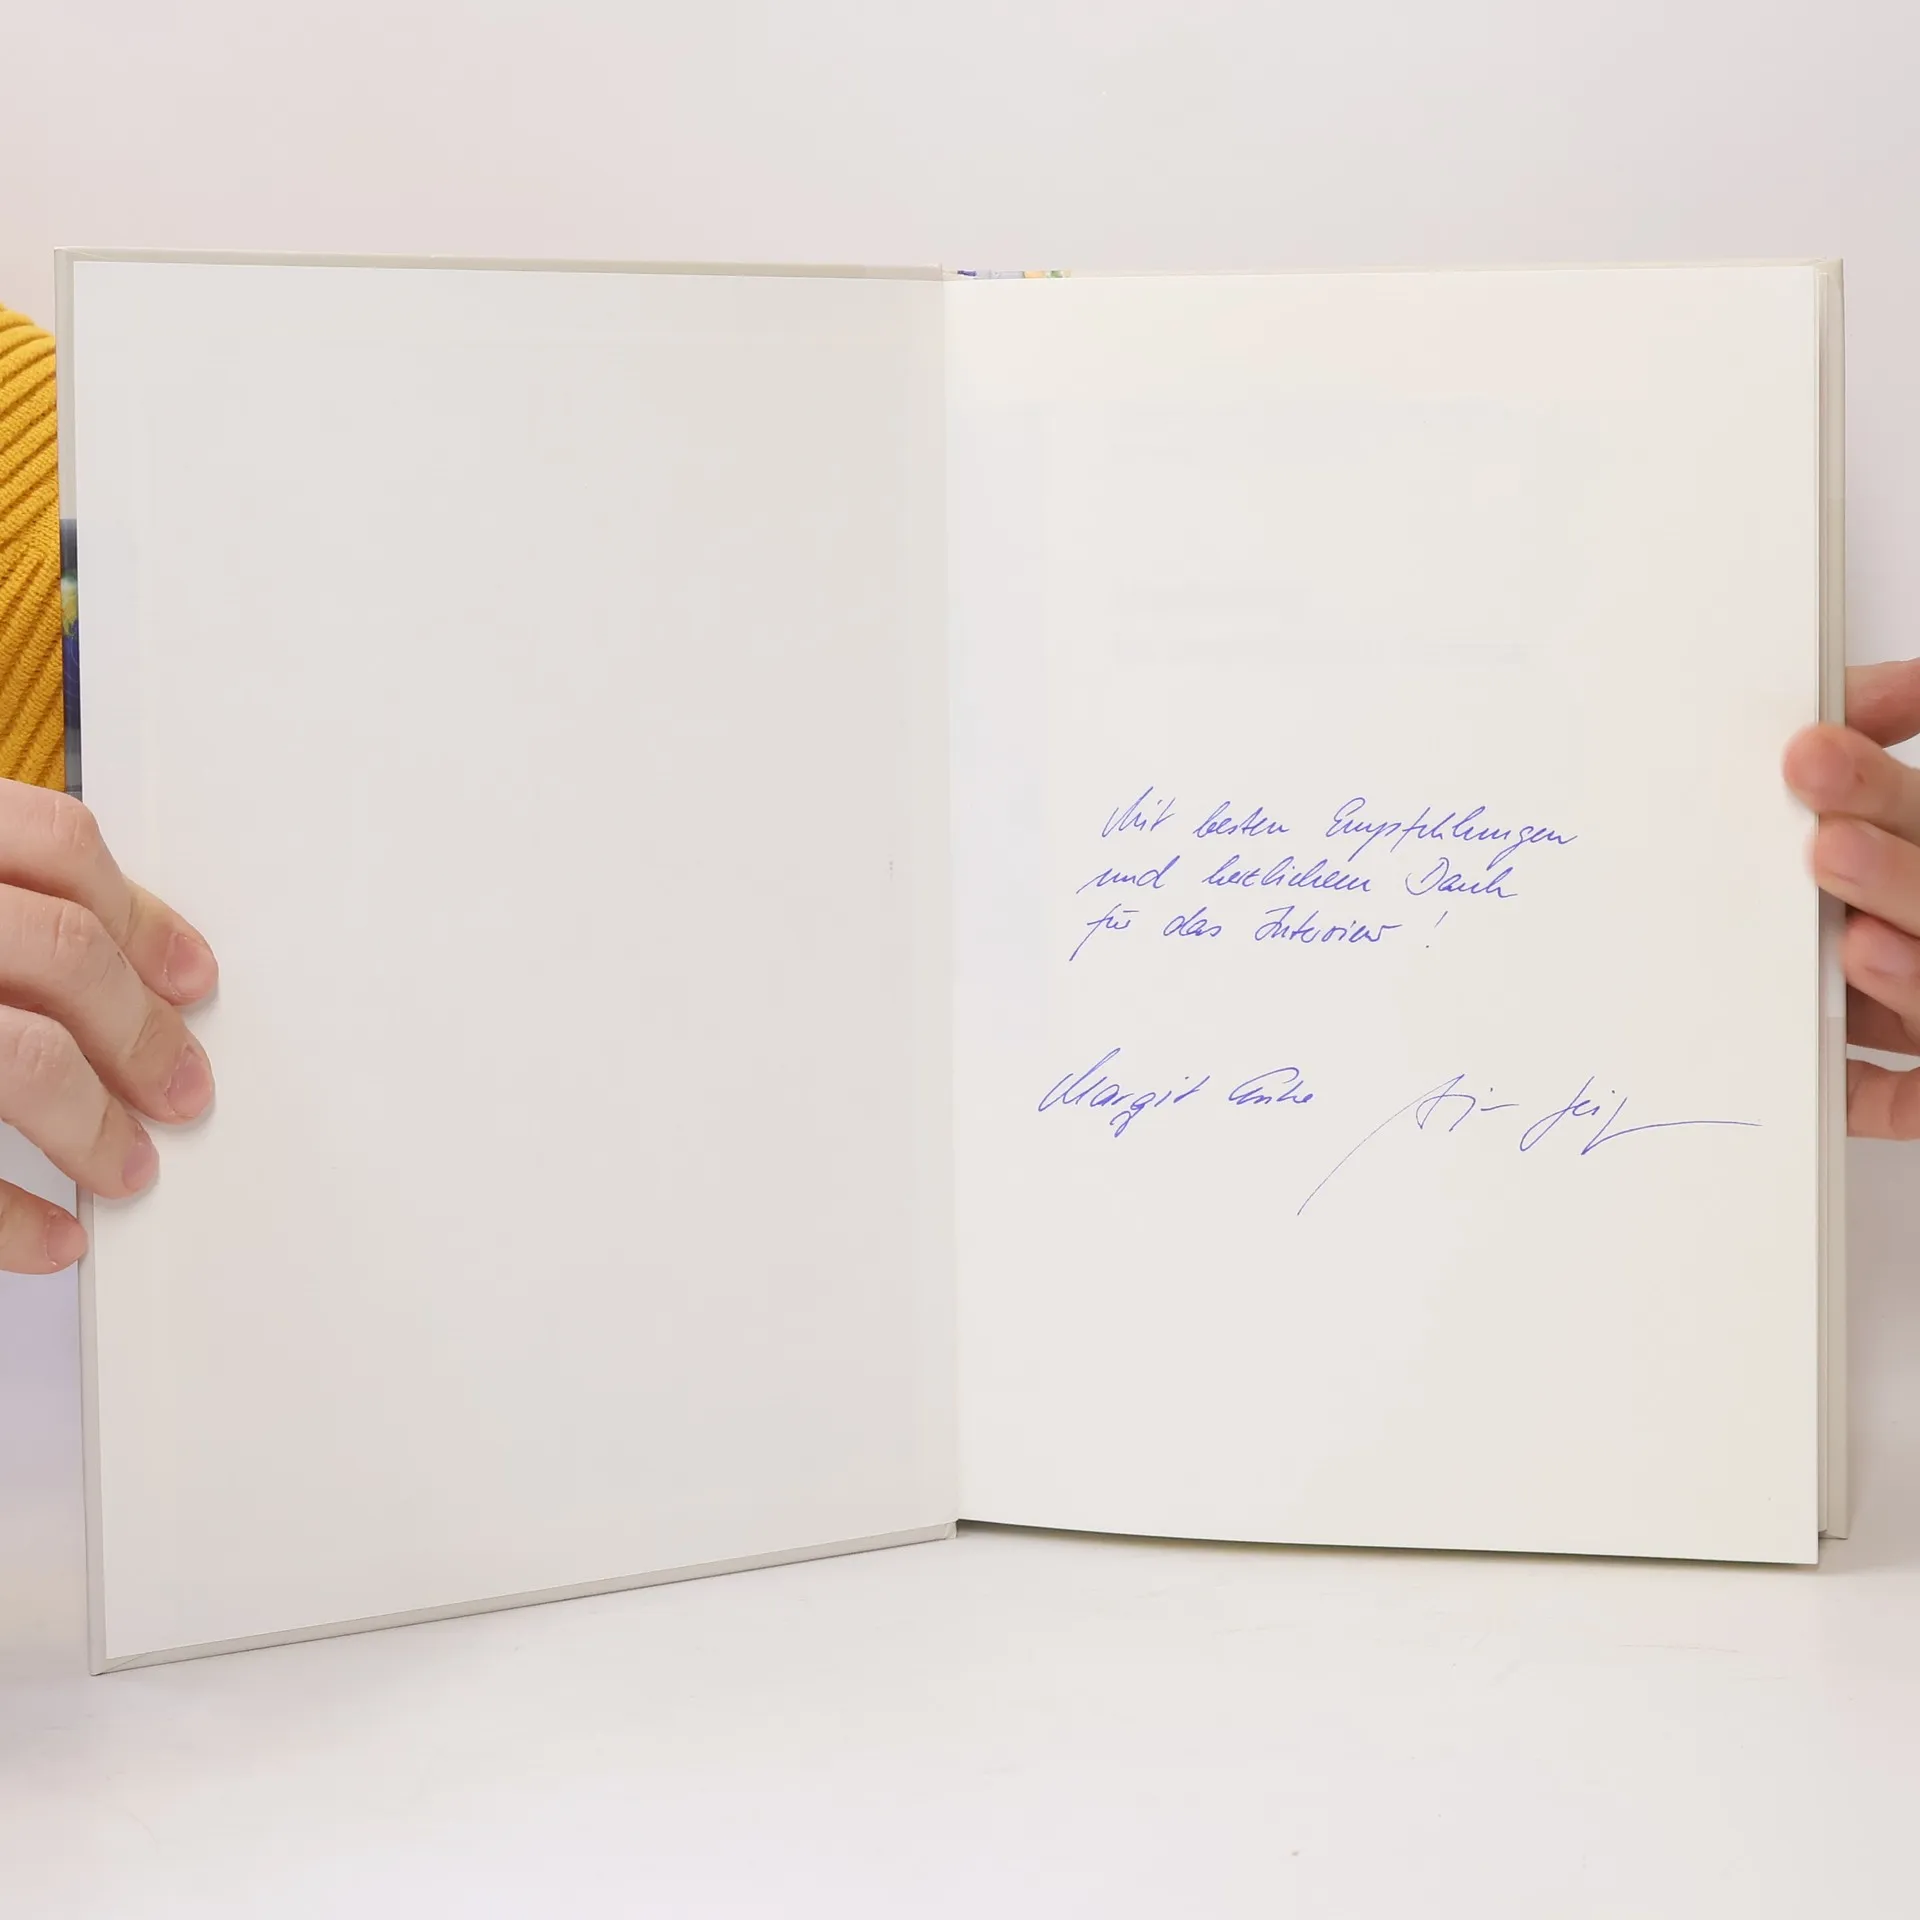 Mit besten Empfehlungen
und herzlichem Dank
für das Interview!
Margit